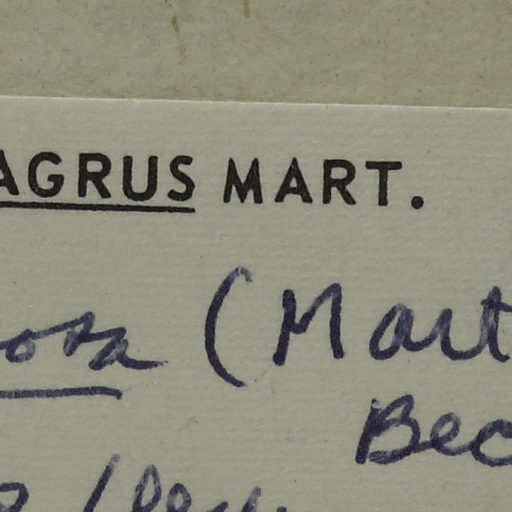 AGRUS MART.
osa (Mart
Bec